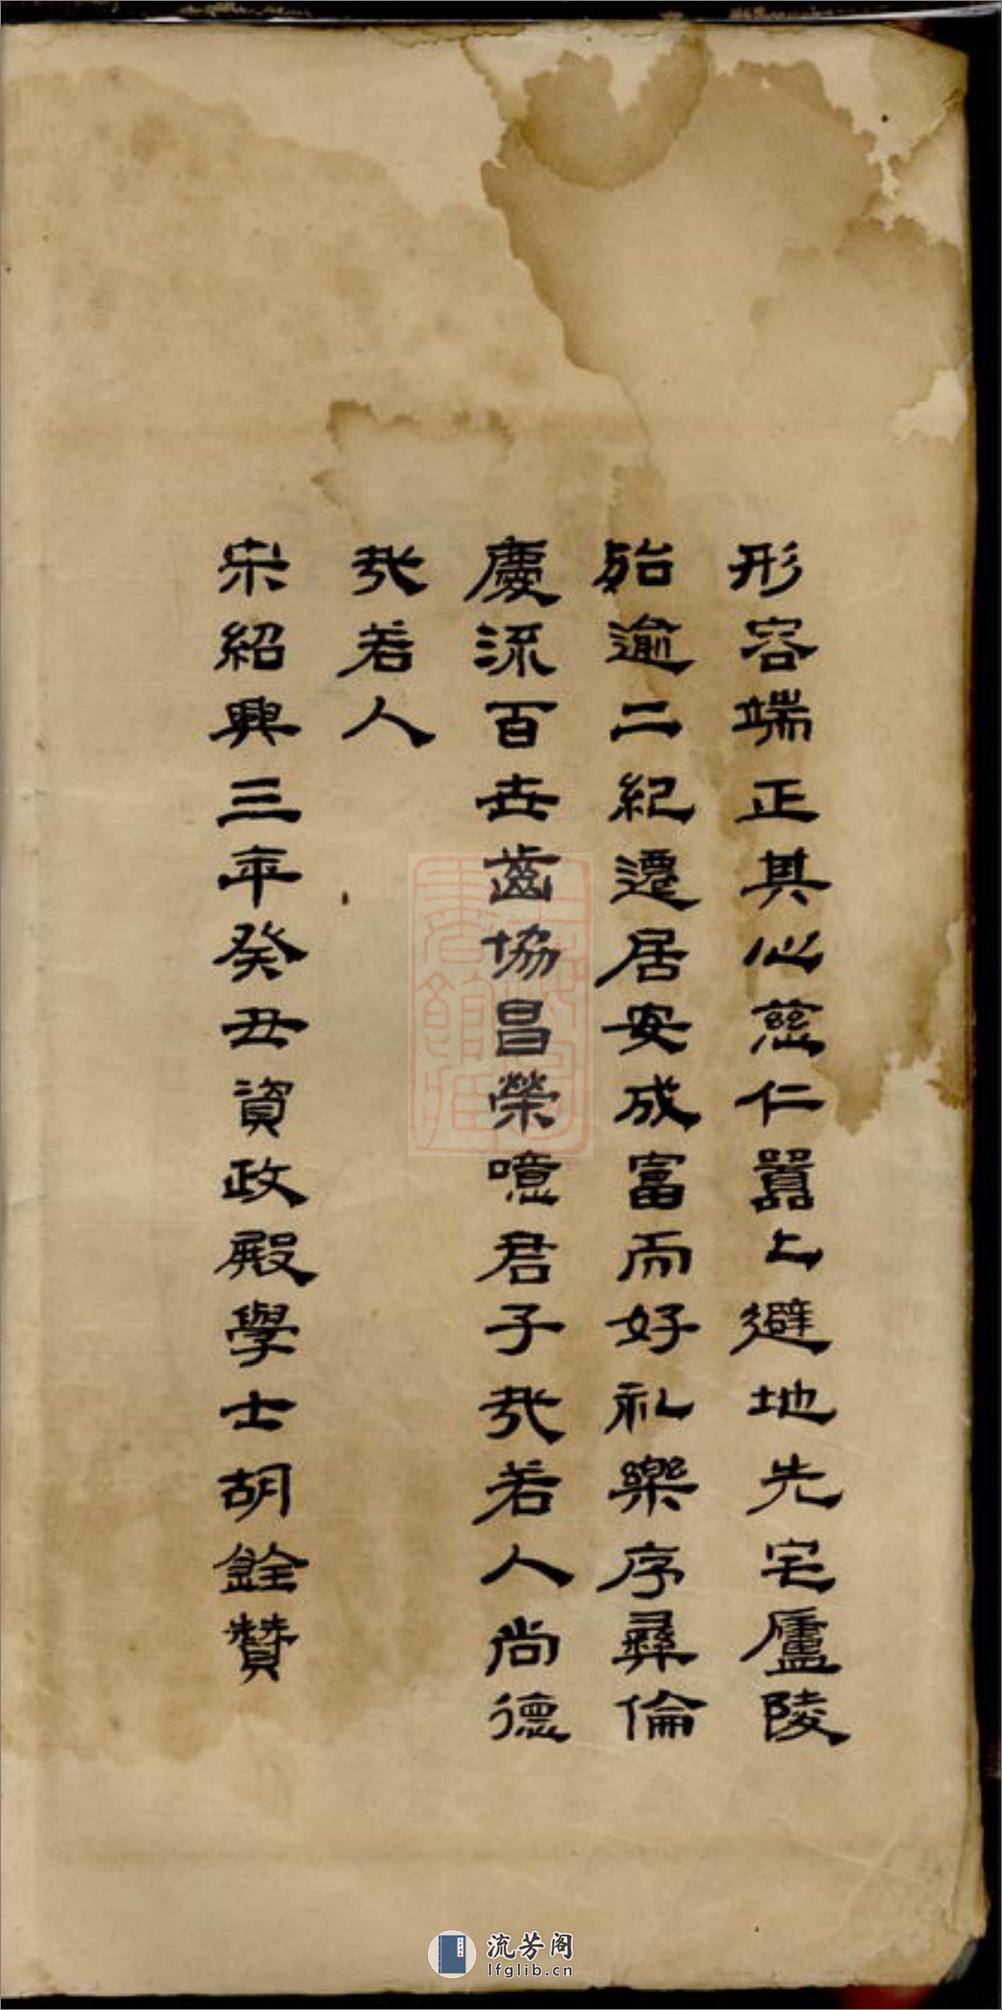 形容端正其心慈仁囂上避地先宅廬陵
殆逾二紀遷居安成富而好礼樂序彞倫
慶流百世齒協昌榮噫君子哉若人尚德
哉若人
宋紹興三年癸丑資政殿學士胡銓贊
流芳阁
lfglib.cn